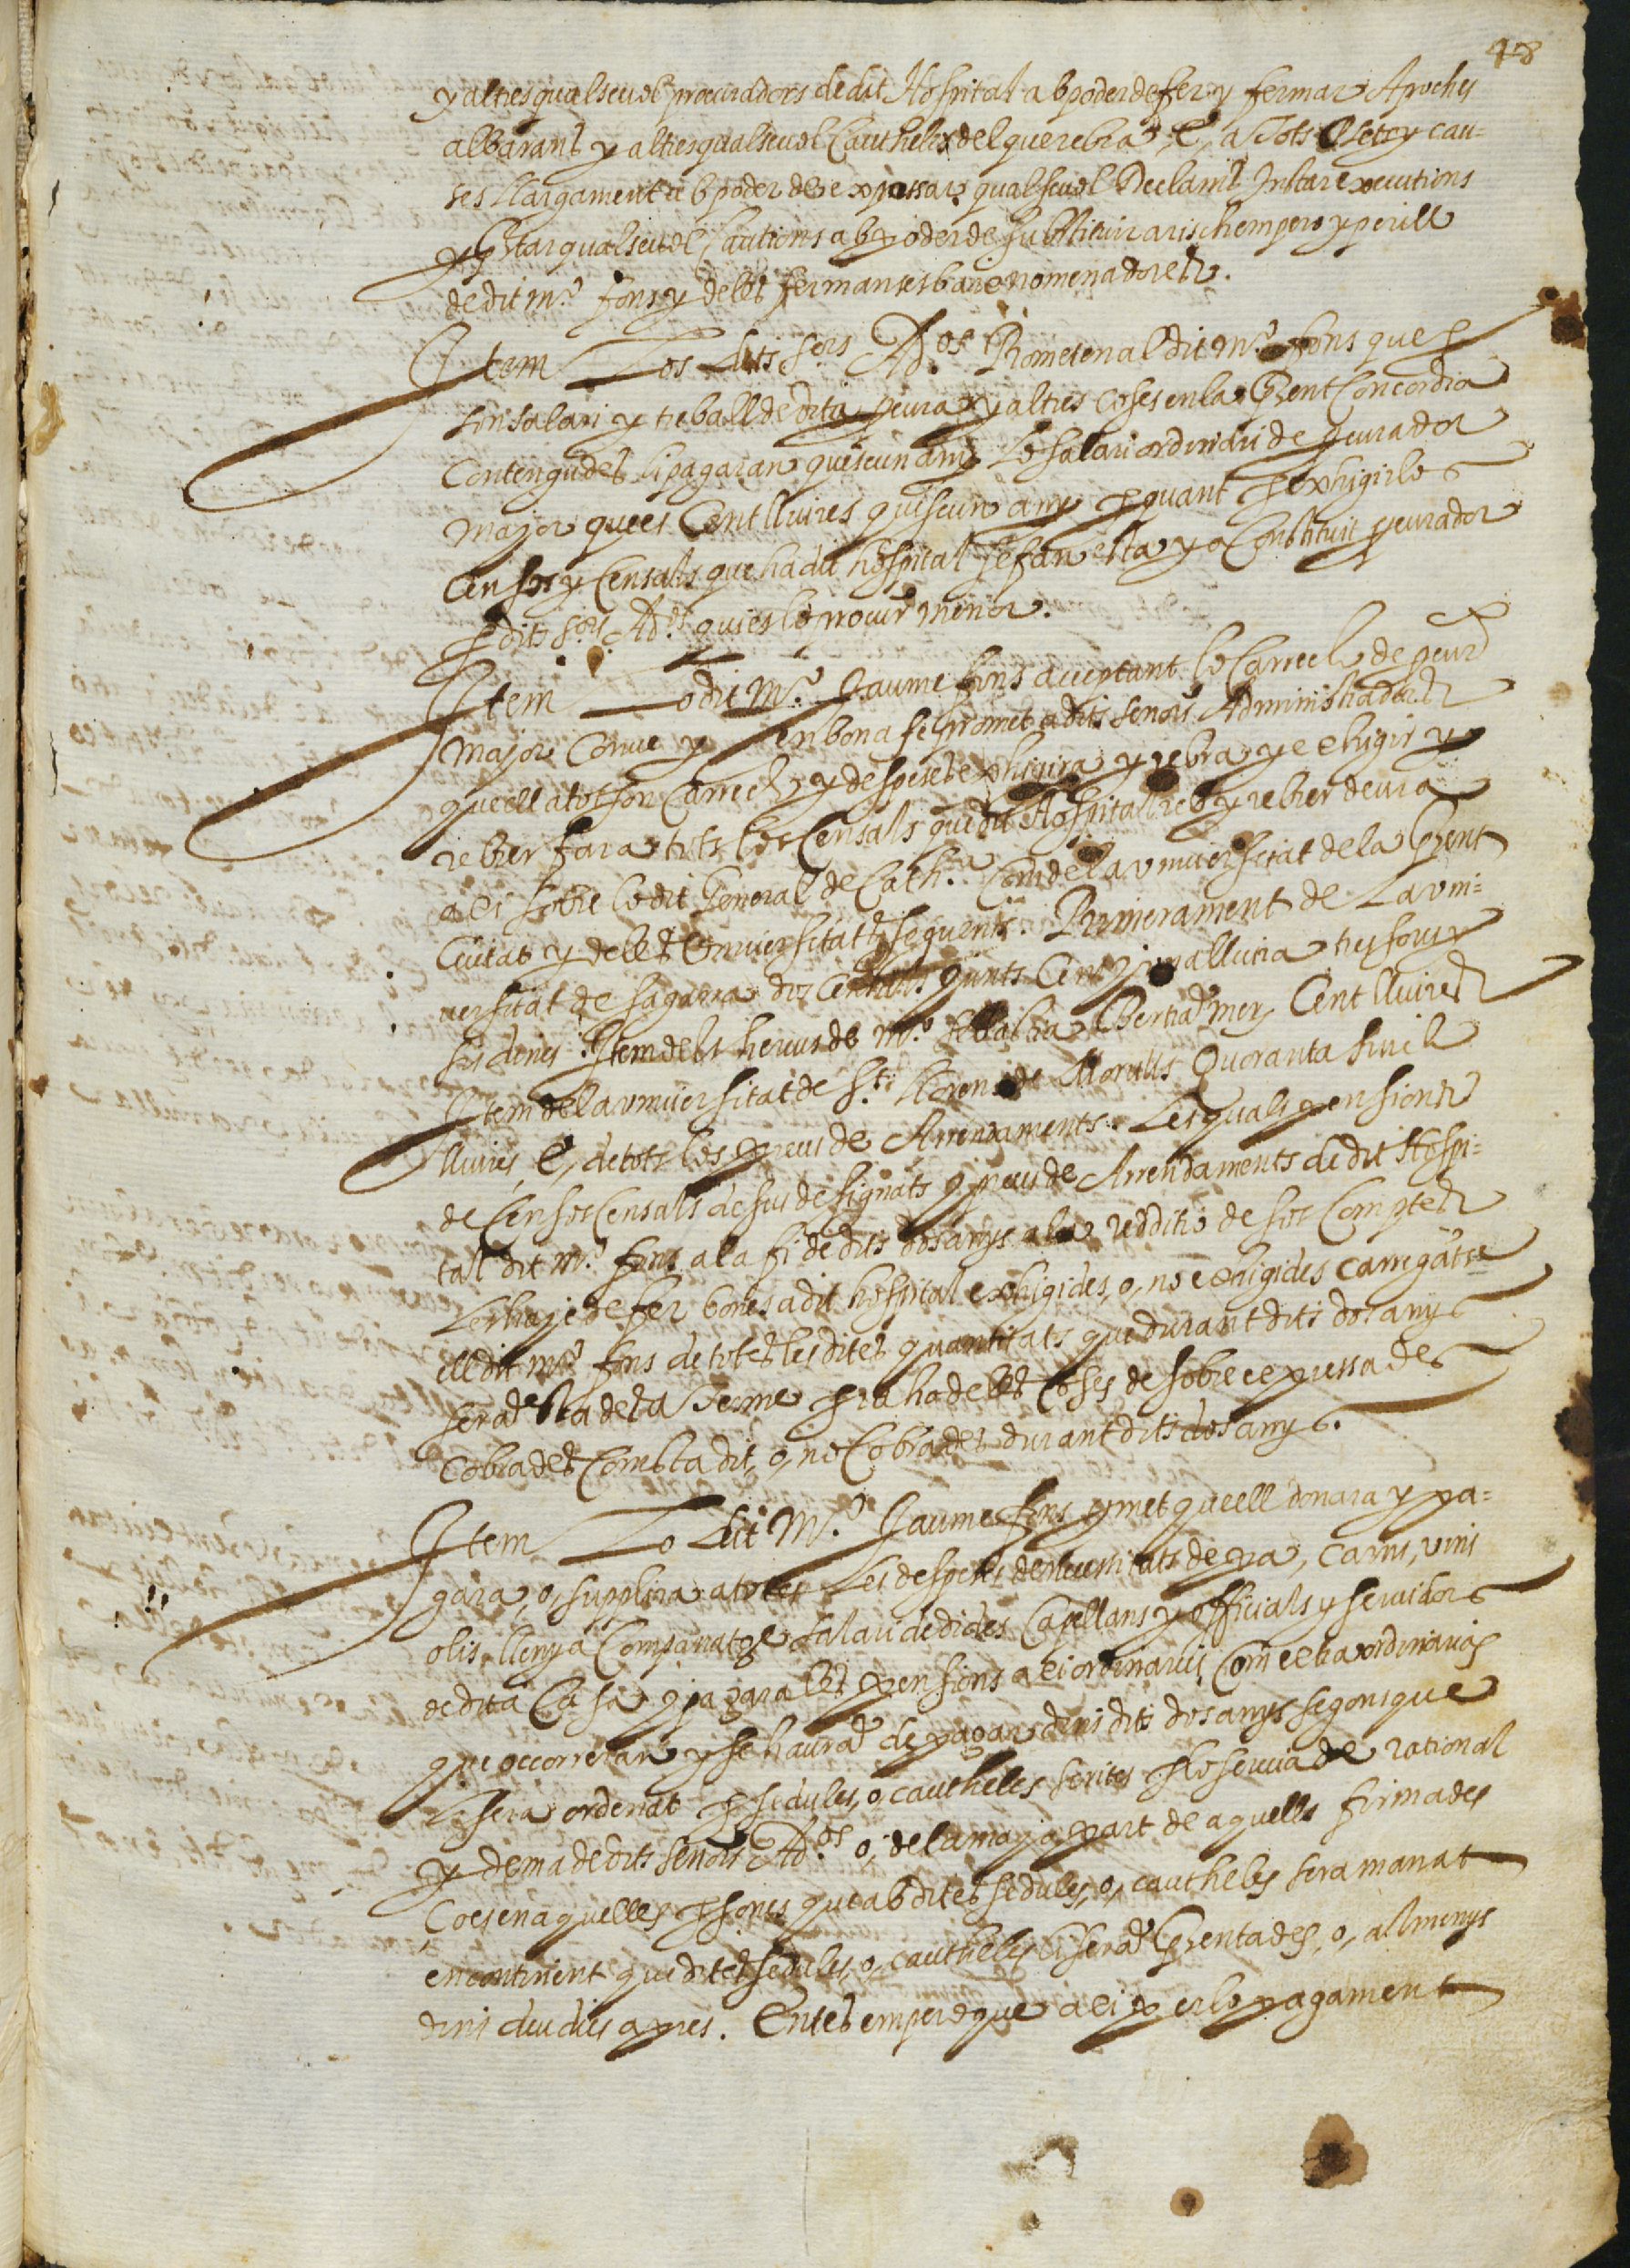 48
y altres qualsevol procuradors de dit Hospital ab poder de fer y fermar Apoches
albarans y altres qualsevol Cautheles del que rebra, E, a Tots Plets y cau-
ses llargament ab poder de expressar qualsevol Reclams Instar executions
y Prestar qualsevol Cautions ab poder de substituir a risch empero y perill
de dit m.º fons y de les fermanses baix nomenadores.
Item Los dits S.ors Ad.ors Prometen al dit m.º fons que per
son salari y treball de dita pcura y altres coses en la pnt Concordia
Contengudes li pagaran quiscun any Lo salari ordinari de pcurador
major que es Cent lliures quiscun any per quant per exhigir los
Censos y Censals que ha dit hospital se fan esta ya Constituit pcurador
per dits S.ors Ad.ors qui es lo procur menor.
Item Lo dit M.º Jaume fons acceptant lo Carrech de pcur
major Conve y en bona fe promet a dits senors Administradors
que ell a tot son Carrech y despeses exhigira y rebra y exhigir y
rebrer fara tots los Censals que dit Hospital reb y rebrer deura
axi sobre lo dit General de Cath.a Com de la universitat de la pnt
Ciutat y de les Universitats seguents. Primerament de La uni-
versitat de sagarra dos Censals junts Cent y una lliura tres sous y
sis diners. Item dels hereus de m.º Bertra mer, Cent lliures
Item de la universitat de S.t Llorens de Morulls Quoranta sinch
lliures, E, de tots los preus de Arrendaments. Les quals pensions
de Censos Censals desus designats y preus de Arrendaments de dit Hospi-
tal dit m.º fons a la fi de dits dos anys a la redditio de sos Comptes
Les haje de fer bones a dit hospital exhigides, o, no exhigides carregatse
ell dit m.º fons de totes les dites quantitats que durant dits dos anys
sera de la Terme per raho de les Coses de sobre expressades
Cobrades Com sta dit, o, no Cobrades durant dits dos anys.
Item Lo dit M.º Jaume fons pmet que ell donara y pa-
gara, o, supplira a totes Les despeses de necessitats de pa, carns, vins
olis, llenya Companatge salari de dides Capellans y officials y servidors
de dita Casa y pagara les pensions axi ordinaris Com extraordinarias
que occorreran y se hauran de pagar dins dits dos anys segons que
Li sera ordenat per sedules, o, cautheles scrites per lo scriva de rational
y de ma de dits senors Ad.ors o, de la major part de aquells firmades
Co es en aquelles psones que ab dites sedules, o, cautheles sera manat
en continent que dites sedules, o, cautheles li seran presentades, o, almenys
dins deu dies apres. Entes empero que axi per lo pagament